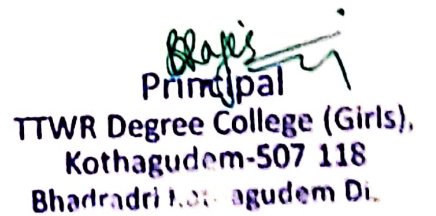 Principal
TTWR Degree College (Girls),
Kothagudem-507 118
Bhadradri